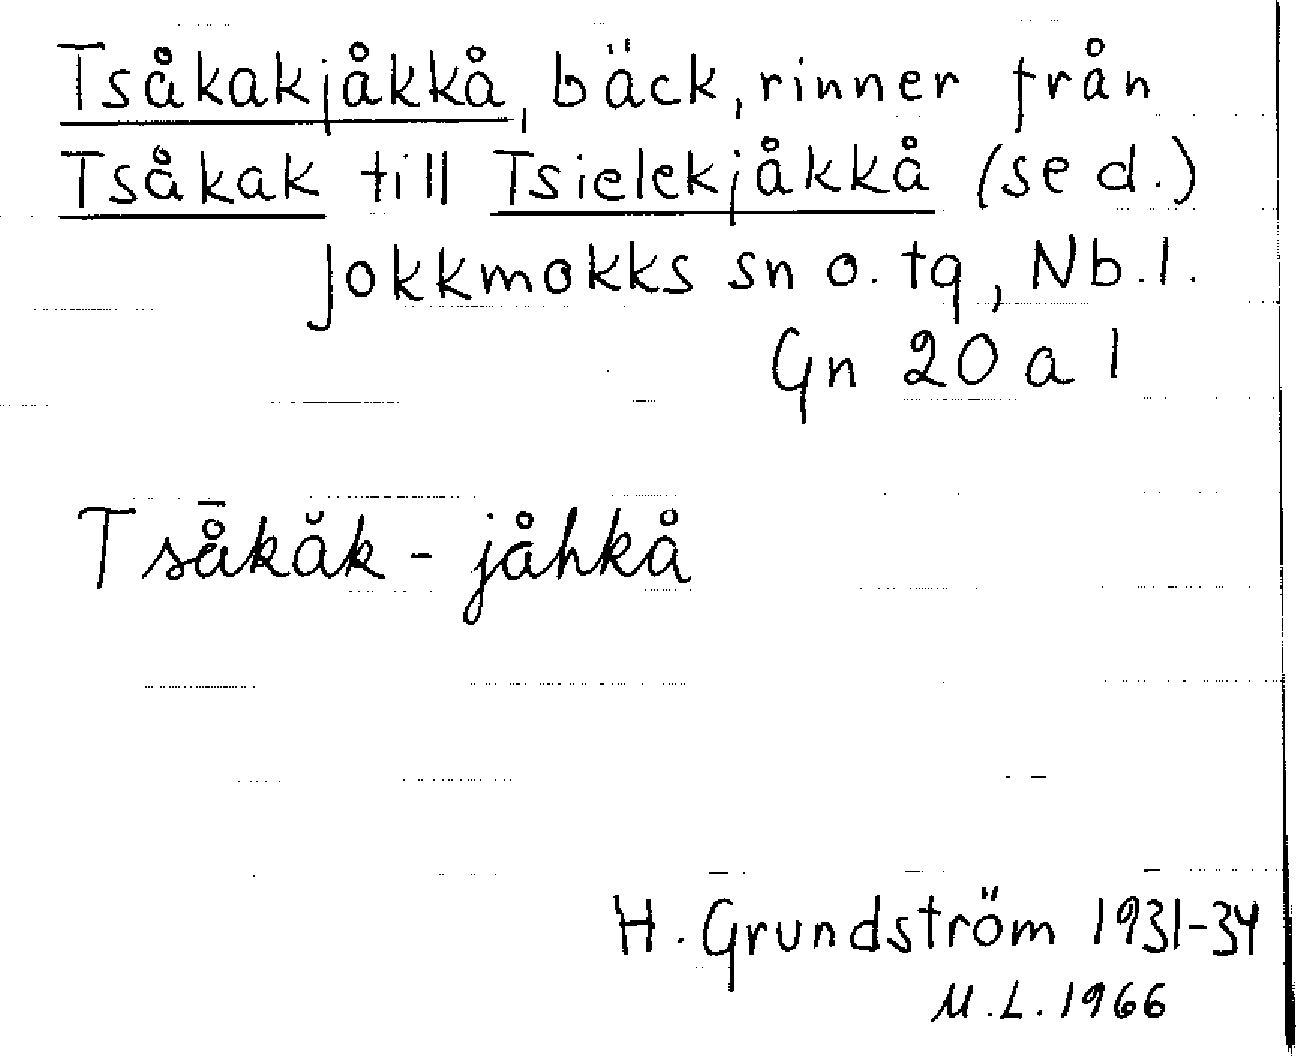 Tsåkakjåkkå, bäck, rinner från
Tsåkak till Tsielekjåkkå (se d.)
Jokkmokks sn o. tg, Nb.l.
Gn 20 a 1
Tså̄kăk - jåhkå
H. Grundström 1931-34
M.L. 1966